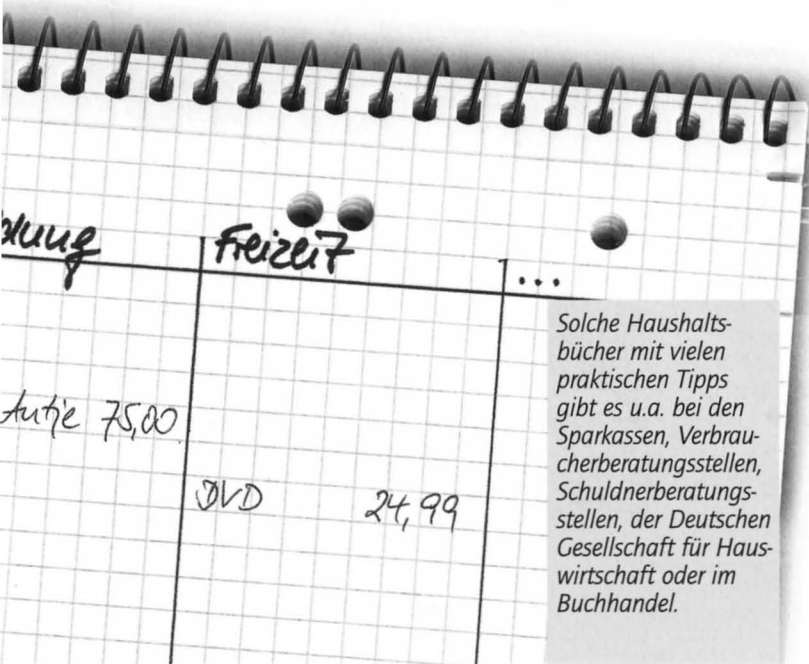 Freizeit
...
Antje 75,00
DVD 24,99
Solche Haushalts-
bücher mit vielen
praktischen Tipps
gibt es u.a. bei den
Sparkassen, Verbrau-
cherberatungsstellen,
Schuldnerberatungs-
stellen, der Deutschen
Gesellschaft für Haus-
wirtschaft oder im
Buchhandel.